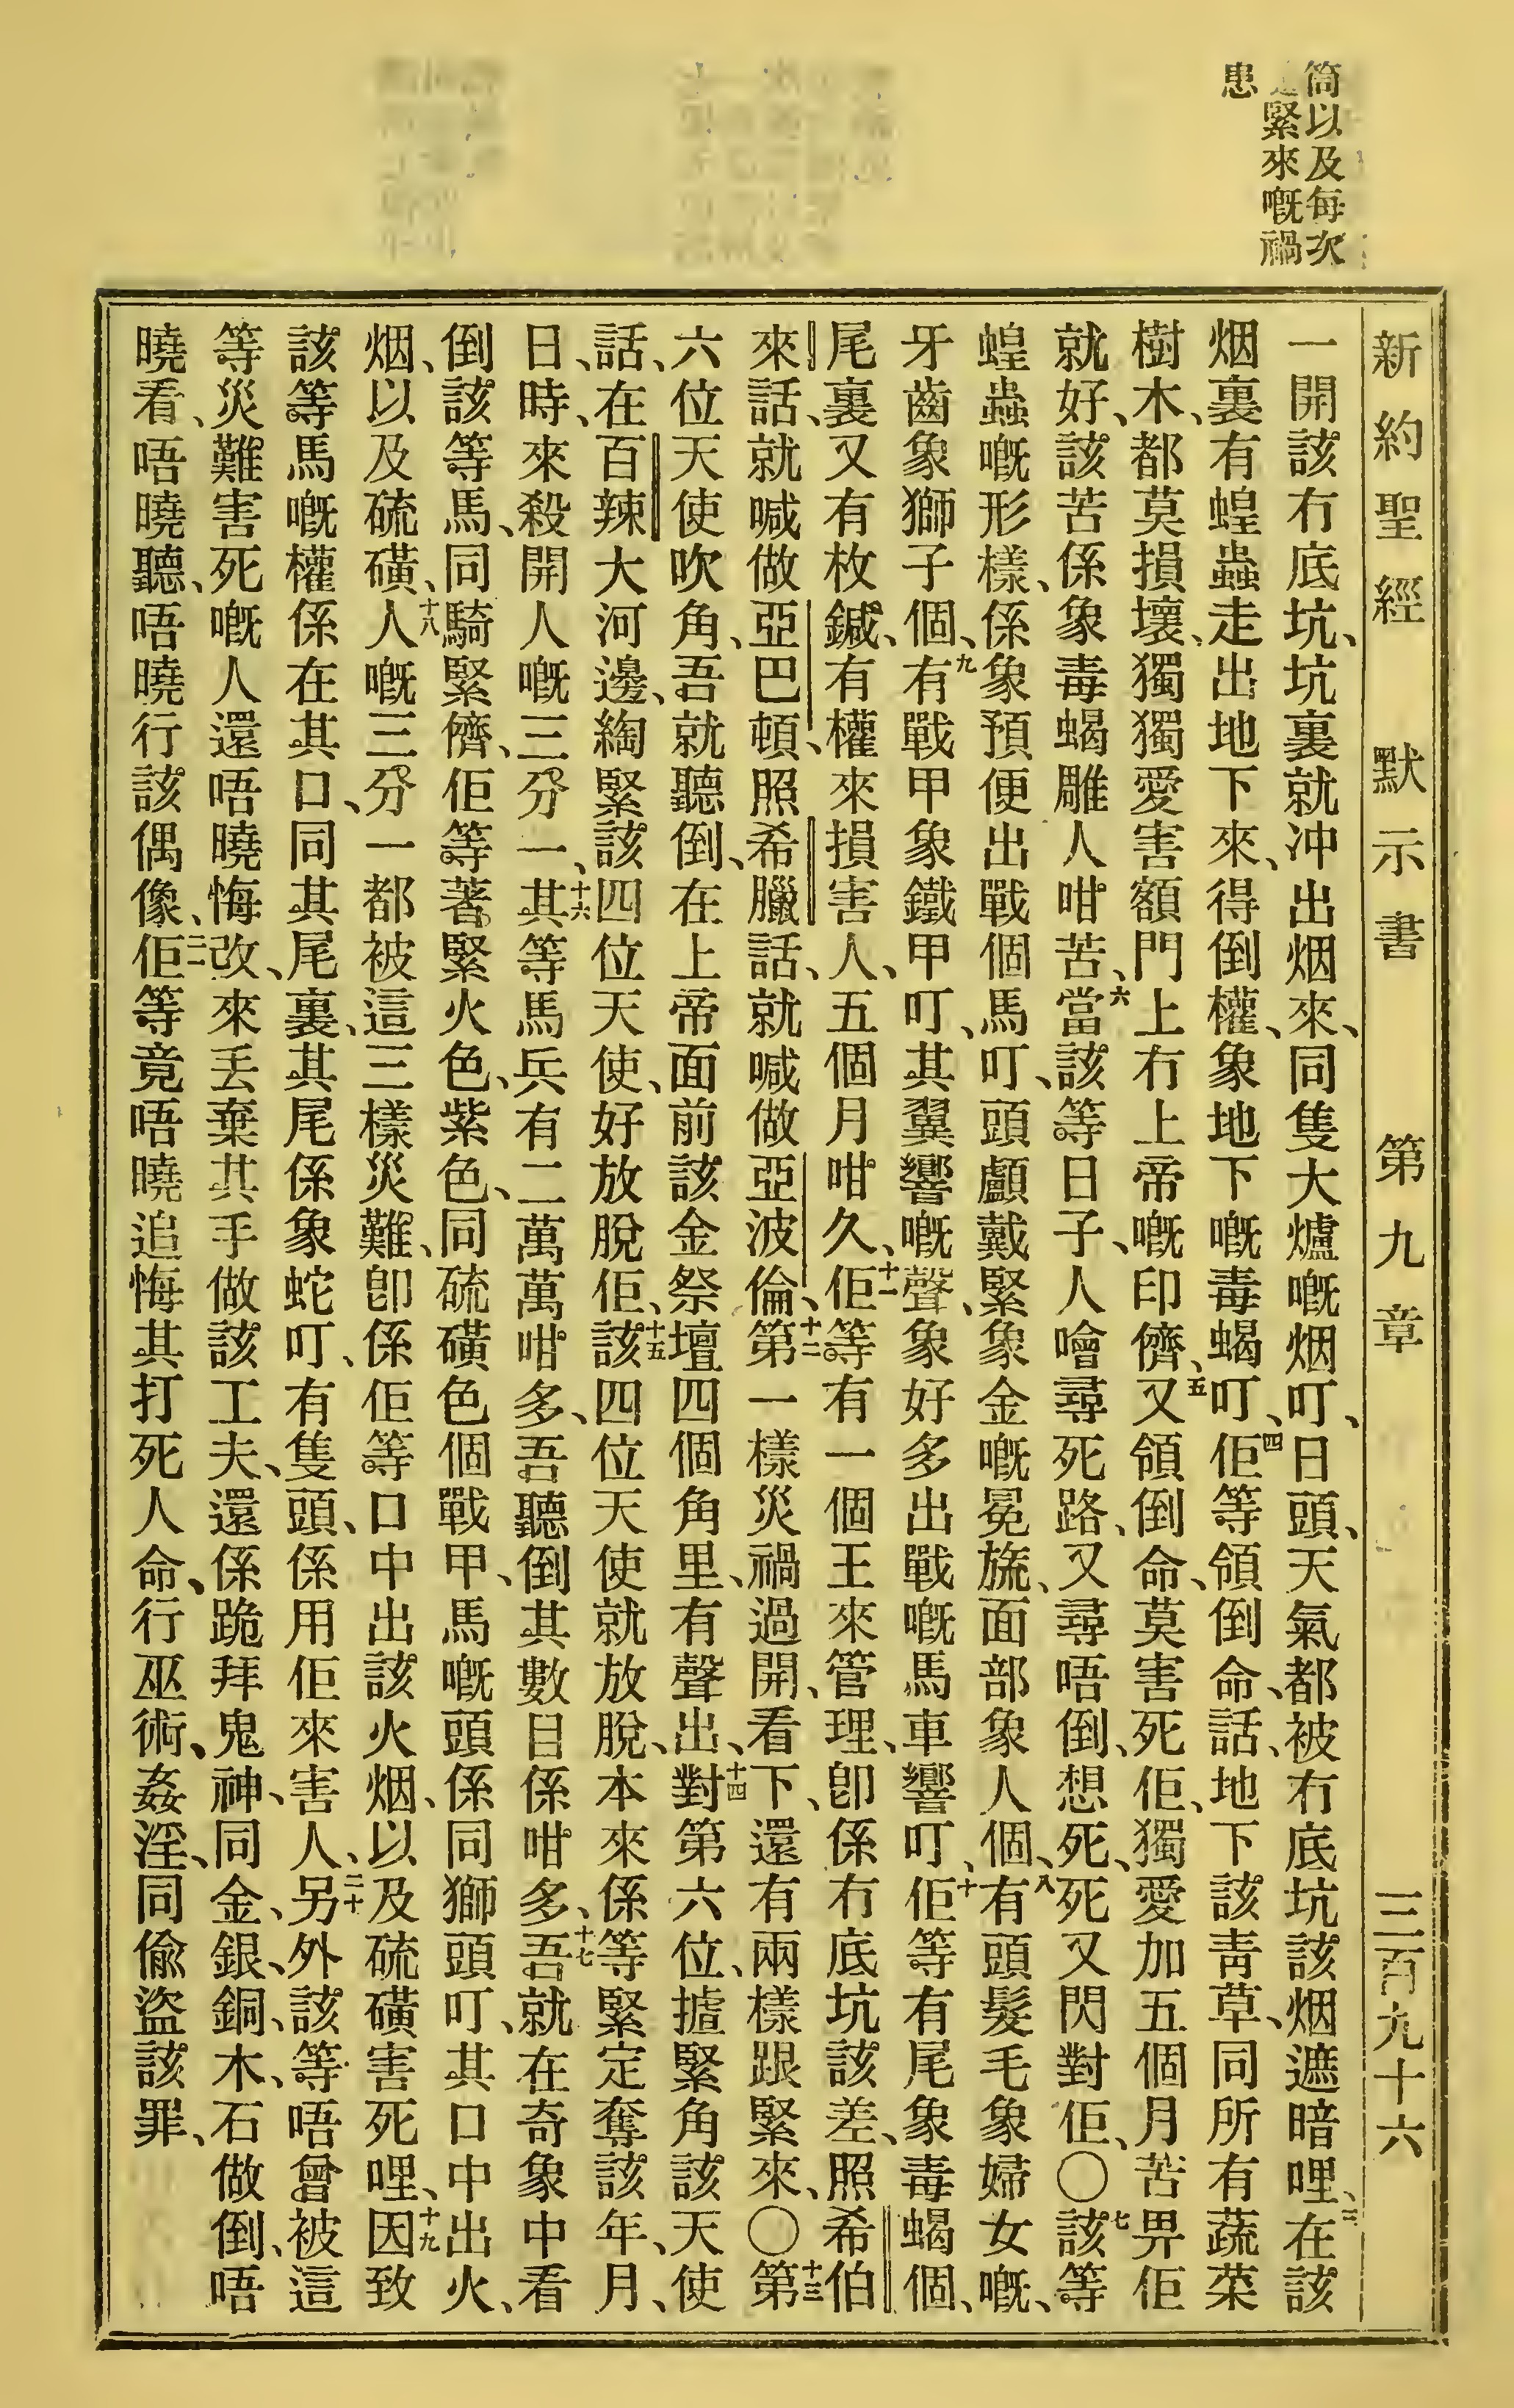 筒以及每次
緊來嘅禍
患
新約聖經 默示書 第九章 三百九十六
一開該冇底坑、坑裏就冲出烟來、同隻大爐嘅烟叮、日頭、天氣都被冇底坑該烟遮暗哩、三在該
烟裏有蝗蟲走出地下來、得倒權、象地下嘅毒蝎叮、四佢等領倒命、話、地下該靑草、同所有蔬菜
樹木、都莫損壞、獨獨愛害額門上冇上帝嘅印儕、五又領倒命、莫害死佢、獨愛加五個月苦畀佢
就好、該苦係象毒蝎雕人咁苦、六當該等日子、人噲尋死路、又尋唔倒、想死、死又閃對佢、〇七該等
蝗蟲嘅形樣、係象預便出戰個馬叮、頭顱戴緊象金嘅冕旒、面部象人個、八有頭髮毛象婦女嘅、
牙齒象獅子個、九有戰甲象鐵甲叮、其翼響嘅聲、象好多出戰嘅馬車響叮、十佢等有尾象毒蝎個、
尾裏又有枚鍼、有權來損害人、五個月咁久、十一佢等有一個王來管理、卽係冇底坑該差、照希伯
來話、就喊做亞巴頓、照希臘話、就喊做亞波倫、十二第一樣災禍過開、看下、還有兩樣跟緊來、〇十三第
六位天使吹角、吾就聽倒、在上帝面前該金祭壇四個角里、有聲出、十四對第六位、摣緊角該天使
話、在百辣大河邊、綯緊該四位天使、好放脫佢、十五該四位天使就放脫、本來係等緊定奪該年、月、
日、時、來殺開人嘅三分一、十六其等馬兵有二萬萬咁多、吾聽倒其數目係咁多、十七吾就在奇象中看
倒該等馬、同騎緊儕、佢等著緊火色、紫色、同硫磺色個戰甲、馬嘅頭係同獅頭叮、其口中出火、
烟、以及硫磺、十八人嘅三分一都被這三樣災難、卽係佢等口中出該火烟、以及硫磺害死哩、十九因致
該等馬嘅權係在其口、同其尾裏、其尾係象蛇叮、有隻頭、係用佢來害人、二十另外該等唔曾被這
等災難害死嘅人還唔曉悔改、來丢棄其手做該工夫、還係跪拜鬼神、同金、銀、銅、木、石做倒、唔
曉看、唔曉聽、唔曉行該偶像、二一佢等竟唔曉追悔其打死人命、行巫術、姦淫、同偷盜該罪、